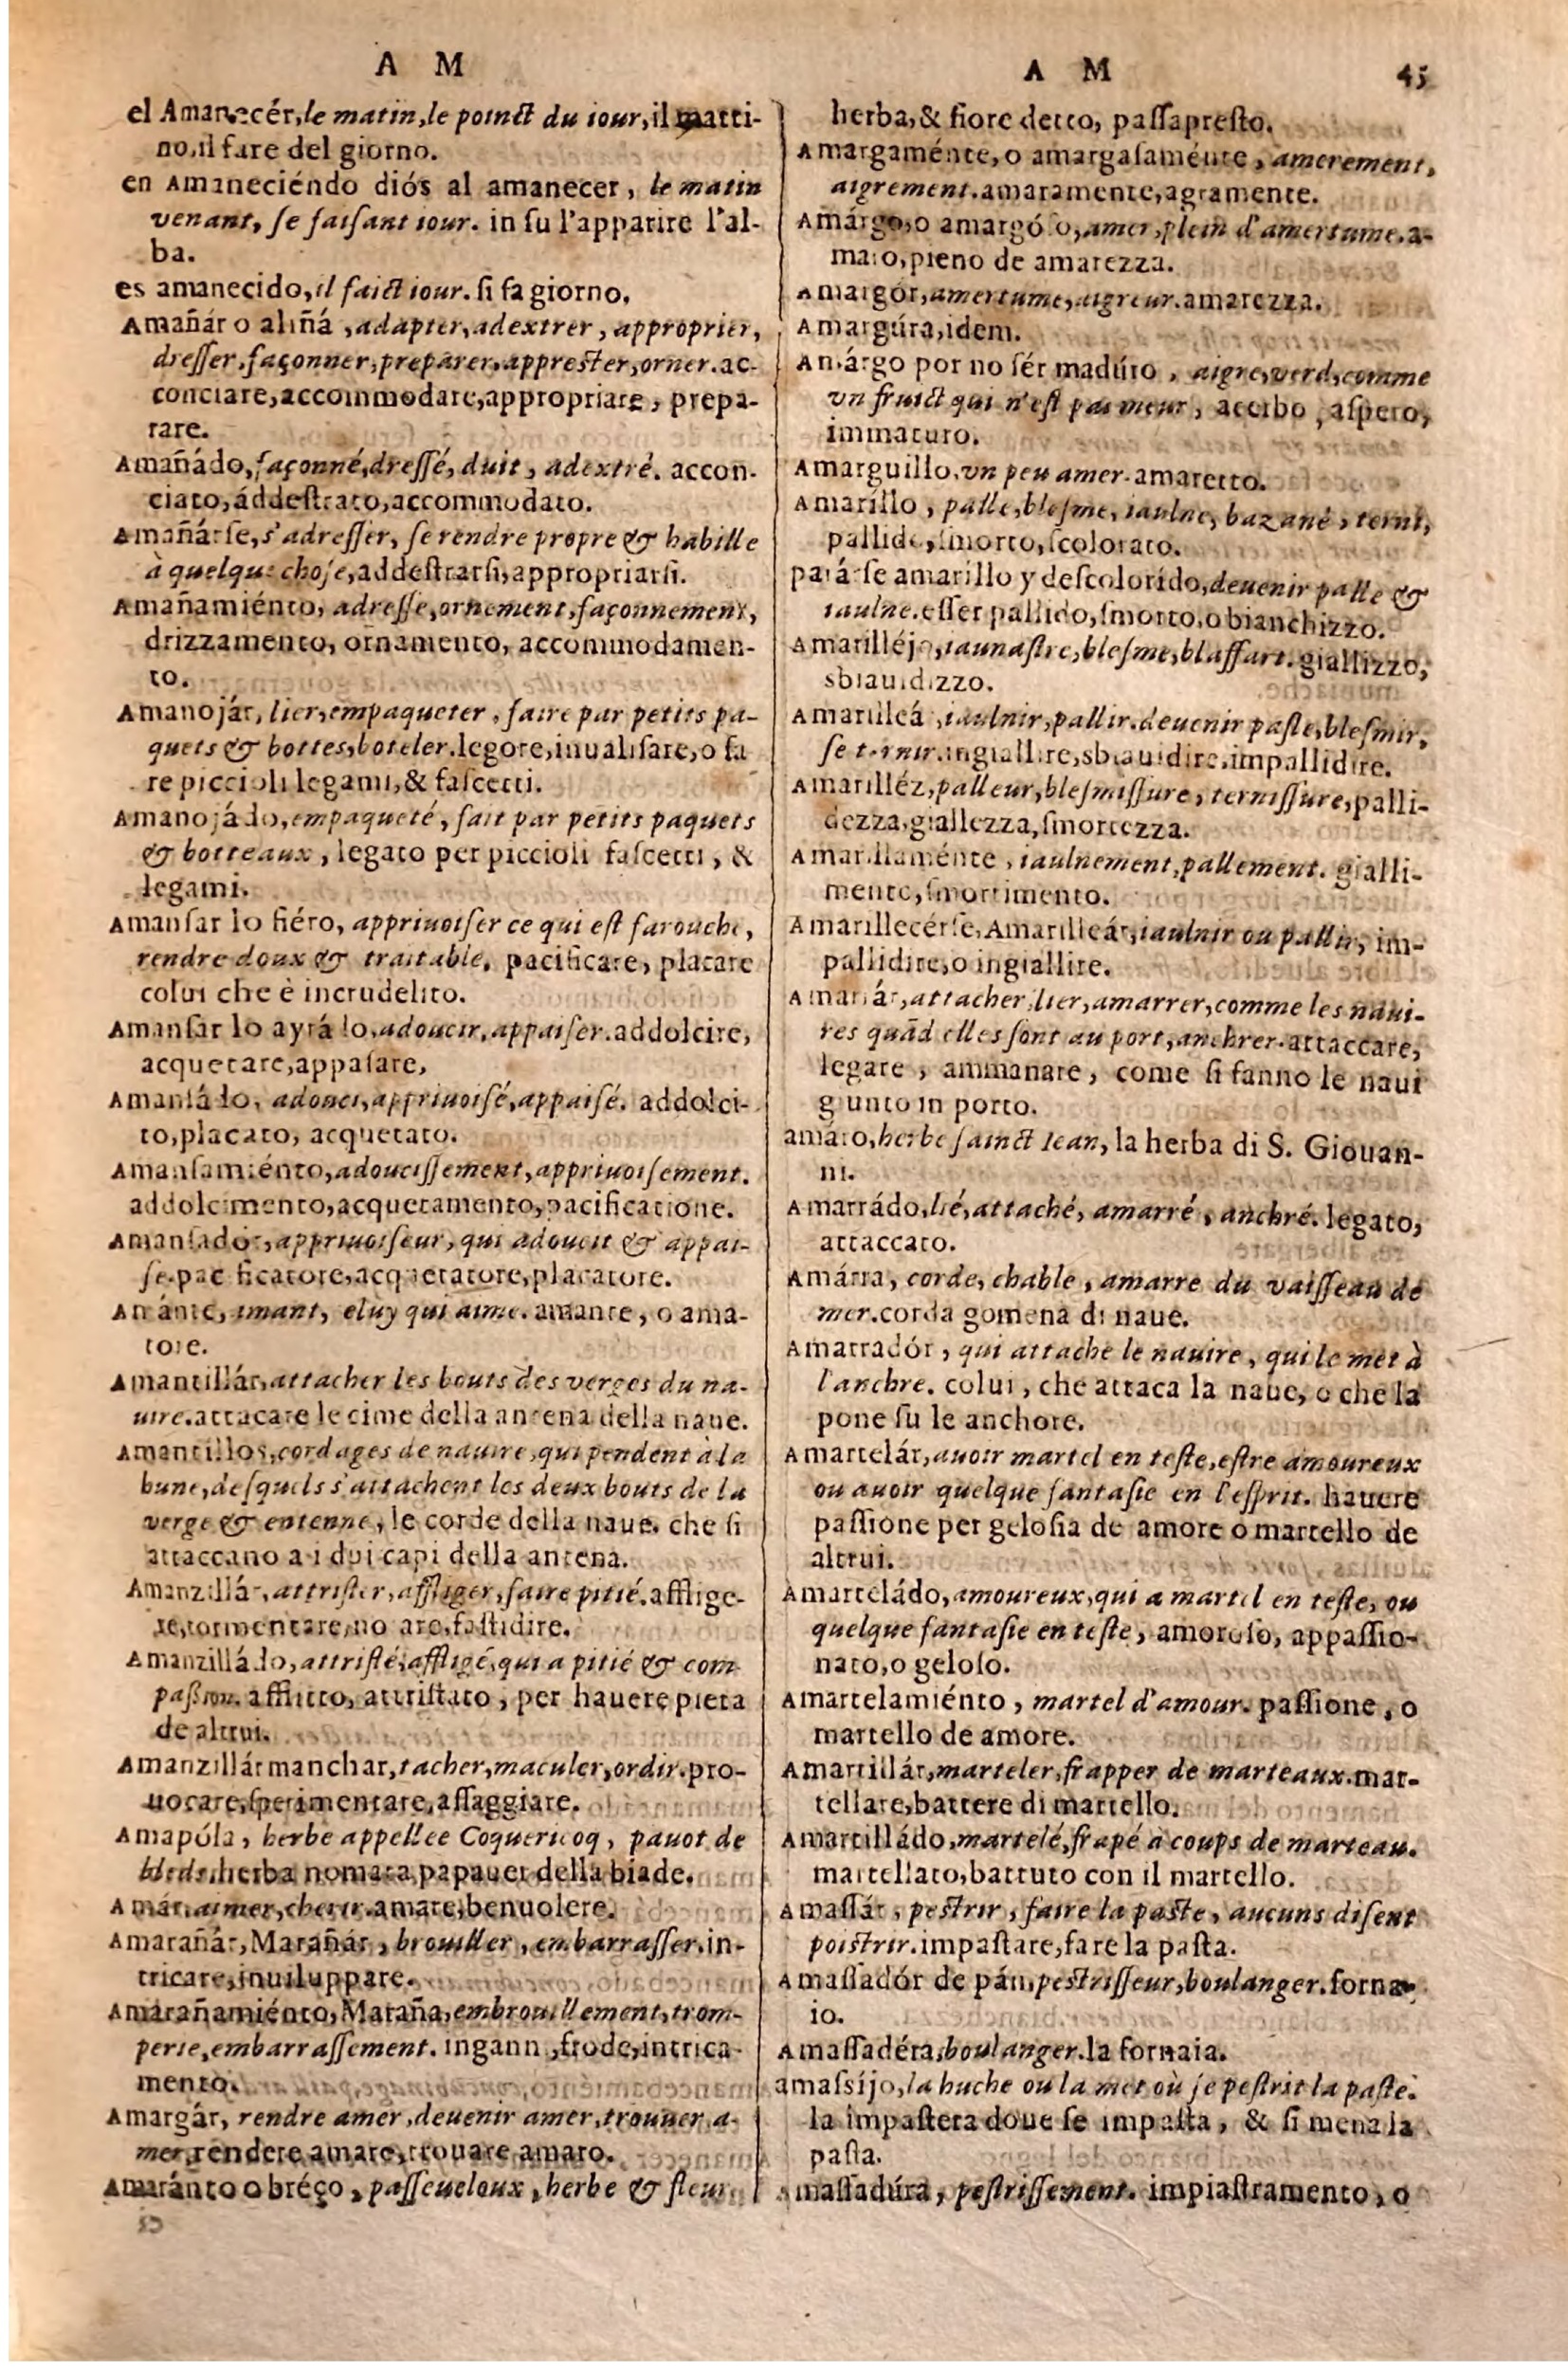 A M
el Amanecér, le matin, le poinct du iour, il matti-
no, il fare del giorno.
en Amaneciéndo diós al amanecer, le matin
venant, se faiſant iour. in ſu l'apparire l'al-
ba.
es amanecido, il faict iour. ſi fa giorno.
Amañár o aliñá, adapter, adextrer, approprier,
dreſſer, façonner, preparer, appreſter, orner. ac-
conciare, accommodare, appropriare, prepa-
rare.
Amañádo, façonné, dreſſé, duit, adextré. accon-
ciato, áddeſtrato, accommodato.
Amañárſe, s'adreſſer, ſe rendre propre & habille
à quelque choſe, addeſtrarſi, appropriarſi.
Amañamiénto, adreſſe, ornement, façonnement,
drizzamento, ornamento, accommodamen-
to.
Amanojár, lier, empaqueter, faire par petits pa-
quets & bottes, boteler. legore, inualiſare, o fa
re piccioli legami, & faſcetti.
Amanojádo, empaqueté, fait par petits paquets
& botteaux, legato per piccioli faſcetti, &
legami.
Amanſar lo fiéro, appriuoiſer ce qui eſt farouche,
rendre doux & traitable. pacificare, placare
colui che è incrudelito.
Amanſar lo ayrádo, adoucir, appaiſer. addolcire,
acquetare, appaſare,
Amanſádo, adouci, appriuoiſé, appaiſé. addolci-
to, placato, acquetato.
Amanſamiénto, adouciſſement, appriuoiſement.
addolcimento, acquetamento, pacificatione.
Amanſadór, appriuoiſeur, qui adoucit & appai-
ſe. pacificatore, acquetatore, placatore.
Amánte, amant, eluy qui aime. amante, o ama-
tore.
Amantillár, attacher les bouts des verges du na-
uire. attacare le cime della antena della naue.
Amantillos, cordages de nauire, qui pendent à la
hune, deſquels s'attachent les deux bouts de la
verge & entenne, le corde della naue. che ſi
attaccano a i doi capi della antena.
Amanzillár, attriſter, affliger, faire pitié. afflige-
re, tormentare, no are, faſtidire.
Amanzilládo, attriſté, affligé, qui a pitié & com-
paßion. afflitto, attriſtato, per hauere pieta
de altrui.
Amanzillár manchar, tacher, maculer, ordir. pro-
uocare, ſperimentare, aſſaggiare.
Amapóla, herbe appellee Coquericoq, pauot de
bleds. herba nomata papauer della biade.
Amár, aimer, cherir. amare, benuolere.
Amarañár, Marañár, brouiller, embarraſſer. in-
tricare, inuiluppare.
Amarañamiénto, Maraña, embrouillement, trom-
perie, embarraſſement. ingann, frode, intrica-
mento.
Amargár, rendre amer, deuenir amer, trouuer a-
mer, rendere amare, trouare amaro.
Amaránto o bréço, paſſeueloux, herbe & fleur
A M 45
herba, & fiore detto, paſſapreſto.
Amargaménte, o amargaſaménte, amerement,
aigrement. amaramente, agramente.
Amárgo, o amargóſo, amer, plein d'amertume. a-
maro, pieno de amarezza.
Amargór, amertume, aigreur. amarezza.
Amargúra, idem.
Amárgo por no ſér madúro, aigre, verd, comme
vn fruict qui n'eſt pas meur, acerbo, aſpero,
immaturo.
Amarguillo, vn peu amer. amaretto.
Amaríllo, palle, bleſme, iaulne, bazané, terni,
pallido, ſmorto, ſcolorato.
parárſe amaríllo y deſcolorído, deuenir palle &
iaulne. eſſer pallido, ſmorto, o bianchizzo.
Amarilléjo, iaunaſtre, bleſme, blaffart. giallizzo,
sbiauidizzo.
Amarilleá, iaulnir, pallir. deuenir paſle, bleſmir,
ſe ternir. ingiallire, sbiauidire. impallidire.
Amarilléz, palleur, bleſmiſſure, terniſſure, palli-
dezza, giallezza, ſmortezza.
Amarillaménte, iaulnement, pallement. gialli-
mente, ſmortimento.
Amarillecérſe, Amarilleár, iaulnir ou pallir, im-
pallidire, o ingiallire.
Amarrár, attacher, lier, amarrer, comme les naui-
res quãd elles ſont au port, anchrer. attaccare,
legare, ammanare, come ſi fanno le naui
giunto in porto.
amáro, herbe ſainct Iean, la herba di S. Giouan-
ni.
Amarrádo, lié, attaché, amarré, anchré. legato,
attaccato.
Amárra, corde, chable, amarre du vaiſſeau de
mer. corda gomena di naue.
Amarradór, qui attache le nauire, qui le met à
l'anchre. colui, che attaca la naue, o che la
pone ſu le anchore.
Amartelár, auoir martel en teſte, eſtre amoureux
ou auoir quelque fantaſie en l'eſprit. hauere
paſſione per geloſia de amore o martello de
altrui.
Amarteládo, amoureux, qui a martel en teſte, ou
quelque fantaſie en teſte, amoroſo, appaſſio-
nato, o geloſo.
Amartelamiénto, martel d'amour. paſſione, o
martello de amore.
Amartillár, marteler, frapper de marteaux. mar-
tellare, battere di martello.
Amartilládo, martelé, frapé à coups de marteau.
martellato, battuto con il martello.
Amaſſár, peſtrir, faire la paſte, aucuns diſent
poiſtrir. impaſtare, fare la paſta.
Amaſſadór de pán, peſtriſſeur, boulanger. forna-
io.
Amaſſadéra, boulanger. la fornaia.
amaſsíjo, la huche ou la met où je peſtrit la paſte.
la impaſtera doue ſe impaſta, & ſi mena la
paſta.
Amaſſadúra, peſtriſſement. impiaſtramento, o